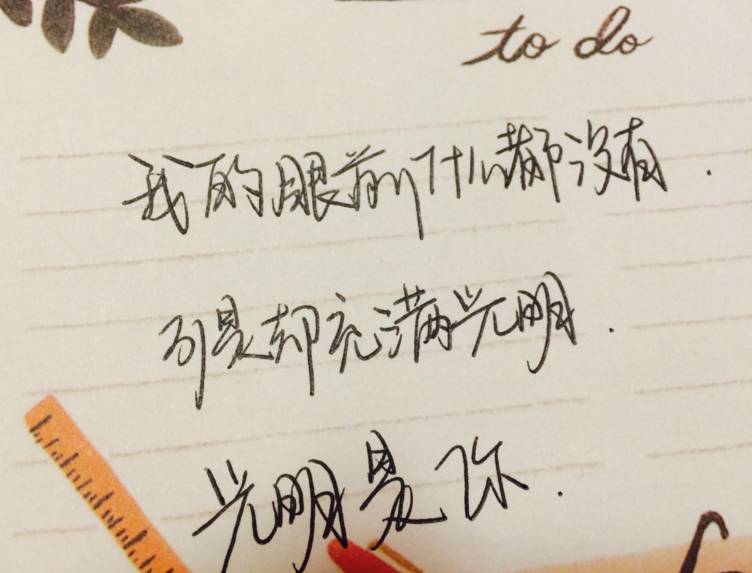 to do
我的眼前什么都没有.
可是却充满光明.
光明是你.